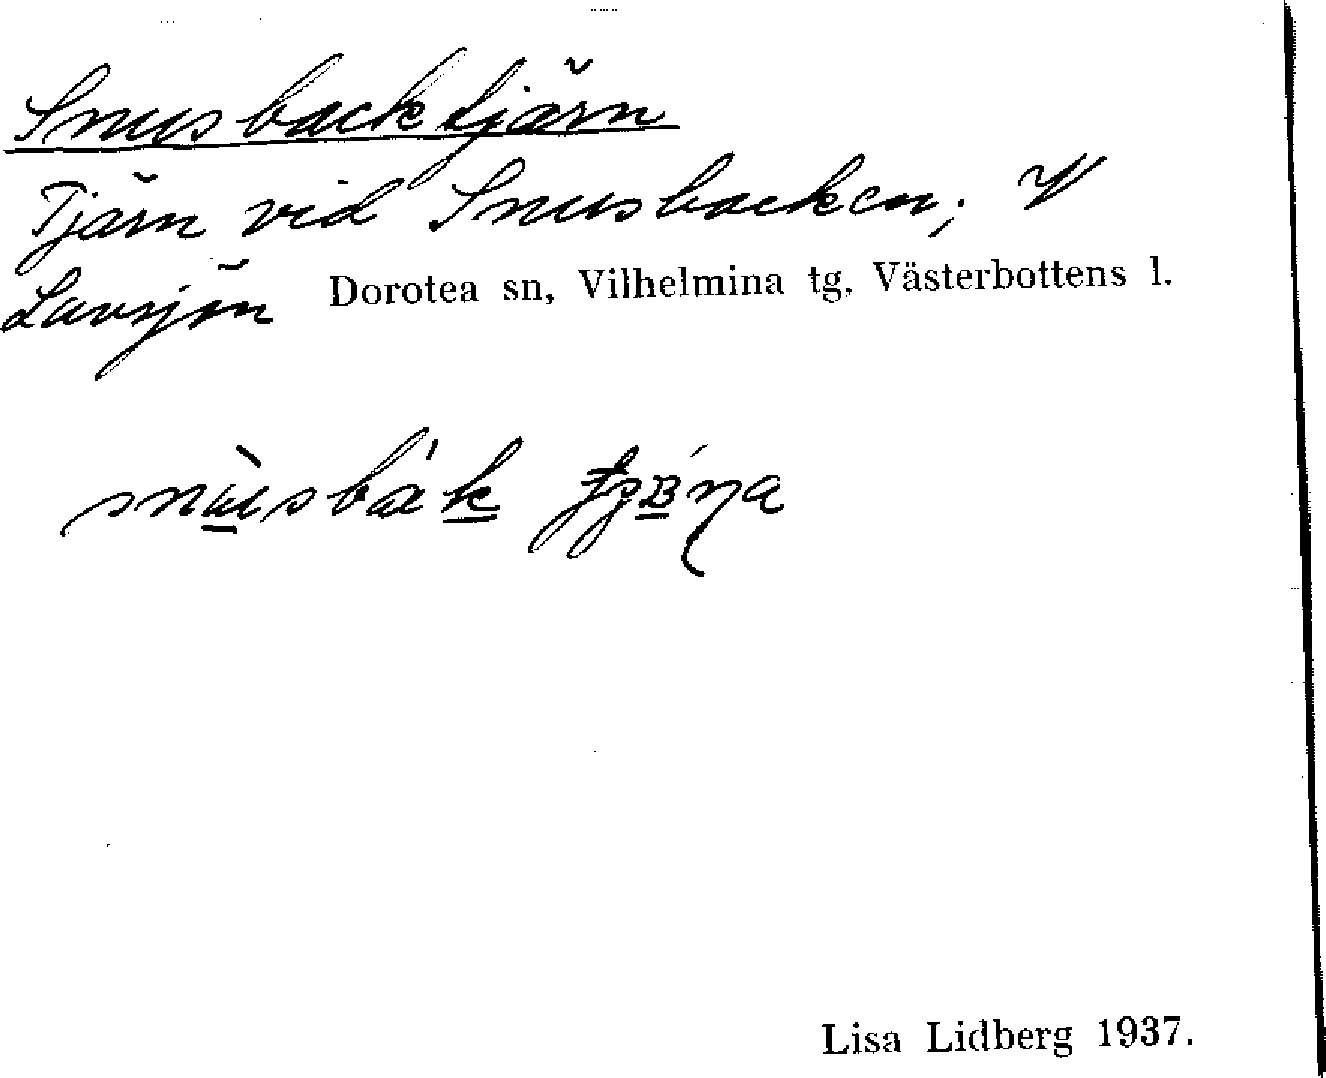 Snusbacktjärn
Tjärn vid Snusbacken; V
Lavsjön Dorotea sn, Vilhelmina tg, Västerbottens l.
Lisa Lidberg 1937.